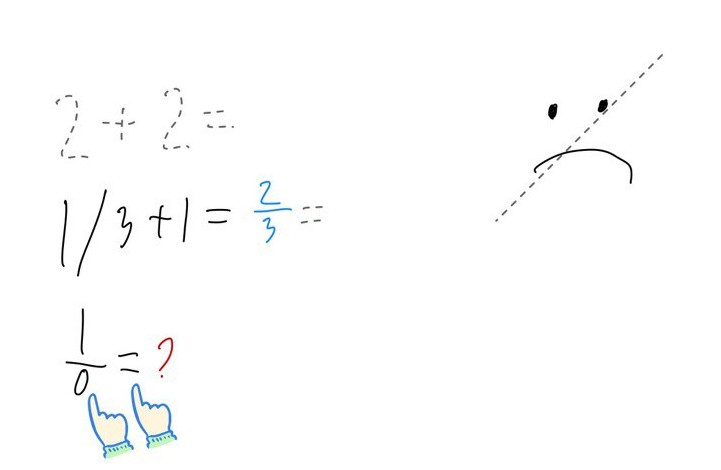 2 + 2 =
1/3 + 1 = 2/3 =
1/0 = ?